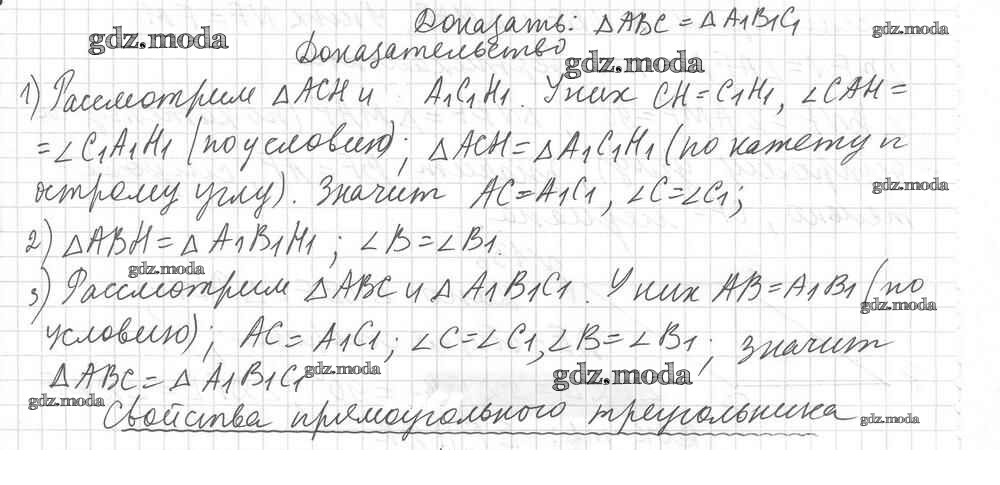 Доказать: △ABC = △A1B1C1
gdz.moda
gdz.moda
Доказательство
gdz.moda
1) Рассмотрим △ACH и A1C1H1. У них CH = C1H1, ∠CAH =
= ∠C1A1H1 (по условию); △ACH = △A1C1H1 (по катету и
острому углу). Значит AC = A1C1, ∠C = ∠C1;
gdz.moda
2) △ABH = △A1B1H1; ∠B = ∠B1.
gdz.moda
3) Рассмотрим △ABC и △A1B1C1. У них AB = A1B1 (по
gdz.moda
условию); AC = A1C1; ∠C = ∠C1, ∠B = ∠B1; значит
△ABC = △A1B1C1
gdz.moda
gdz.moda
gdz.moda
Свойства прямоугольного треугольника
gdz.moda